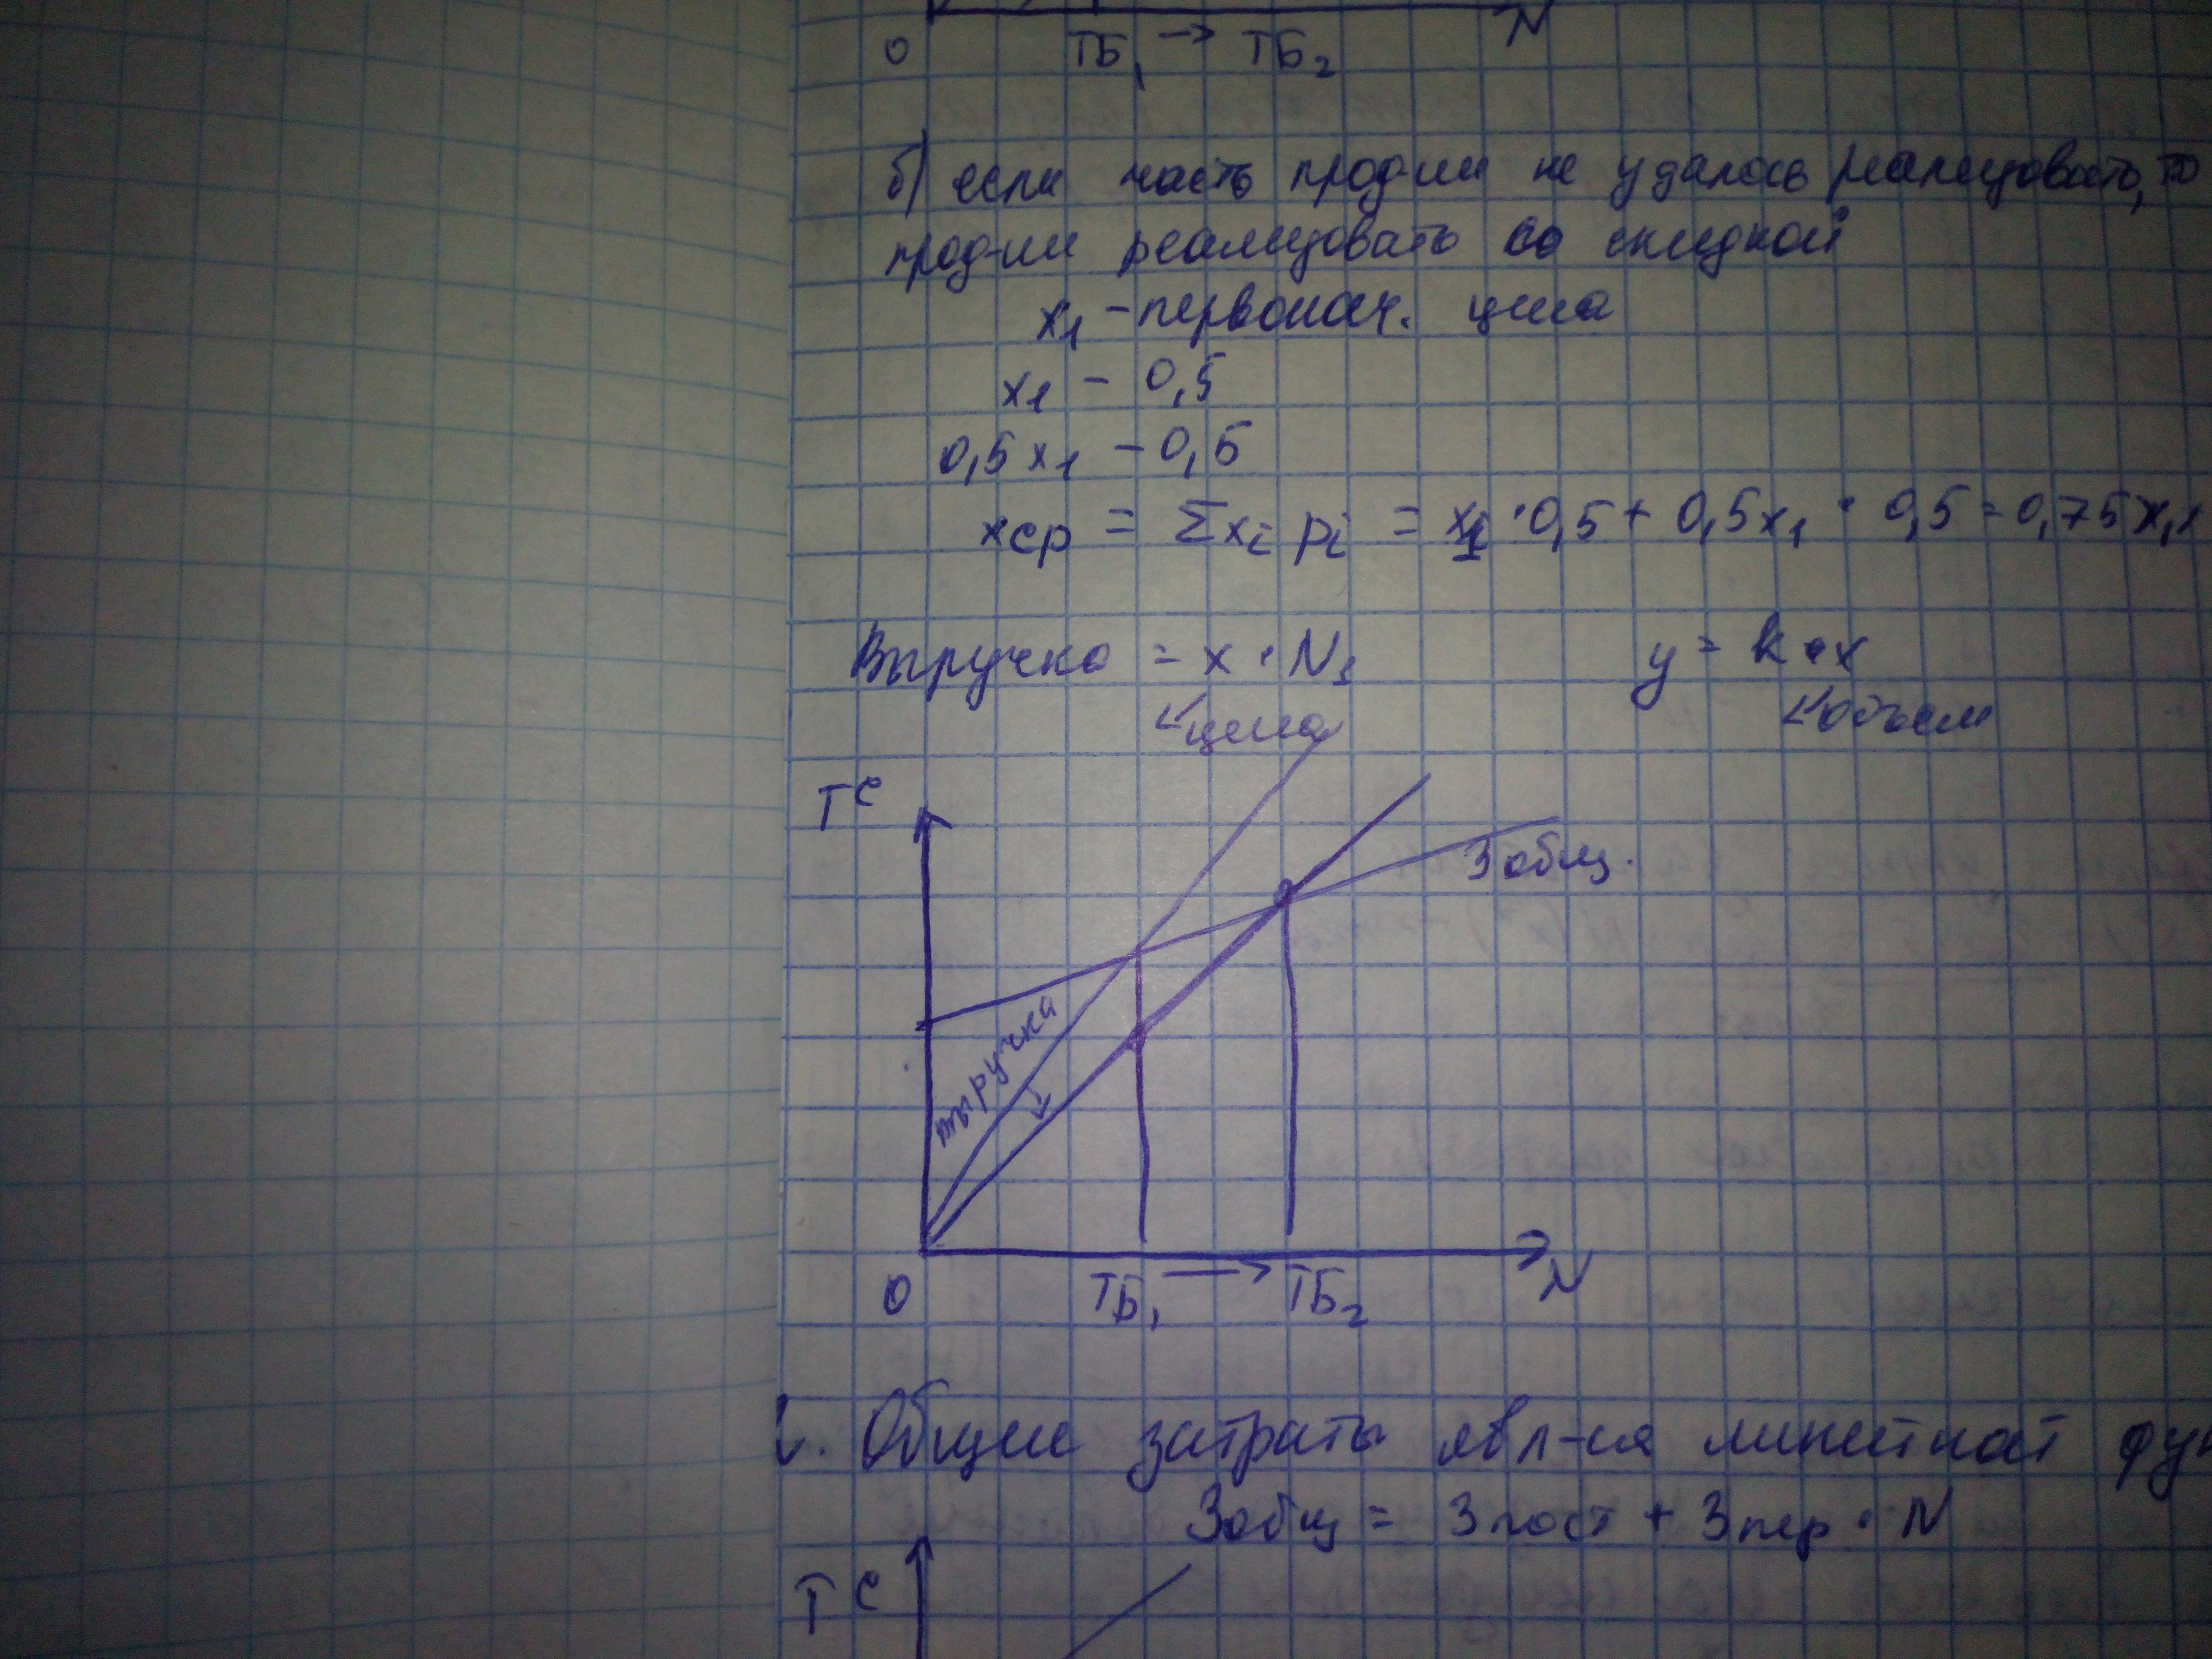 0 ТБ₁ → ТБ₂ N
б) если часть прод-ии не удалось реализовать, то
прод-ии реализовать со скидкой
x₁ – первонач. цена
x₁ – 0,5
0,5x₁ – 0,5
xср = Σxᵢ pᵢ = x₁ · 0,5 + 0,5x₁ · 0,5 = 0,75x₁
Выручка = x · N₁ y = k · x
цена объем
TC
Зобщ.
выручка
0 ТБ₁ → ТБ₂ N
Общие затраты явл-ся
Зобщ = Зпост + Зпер · N
TC